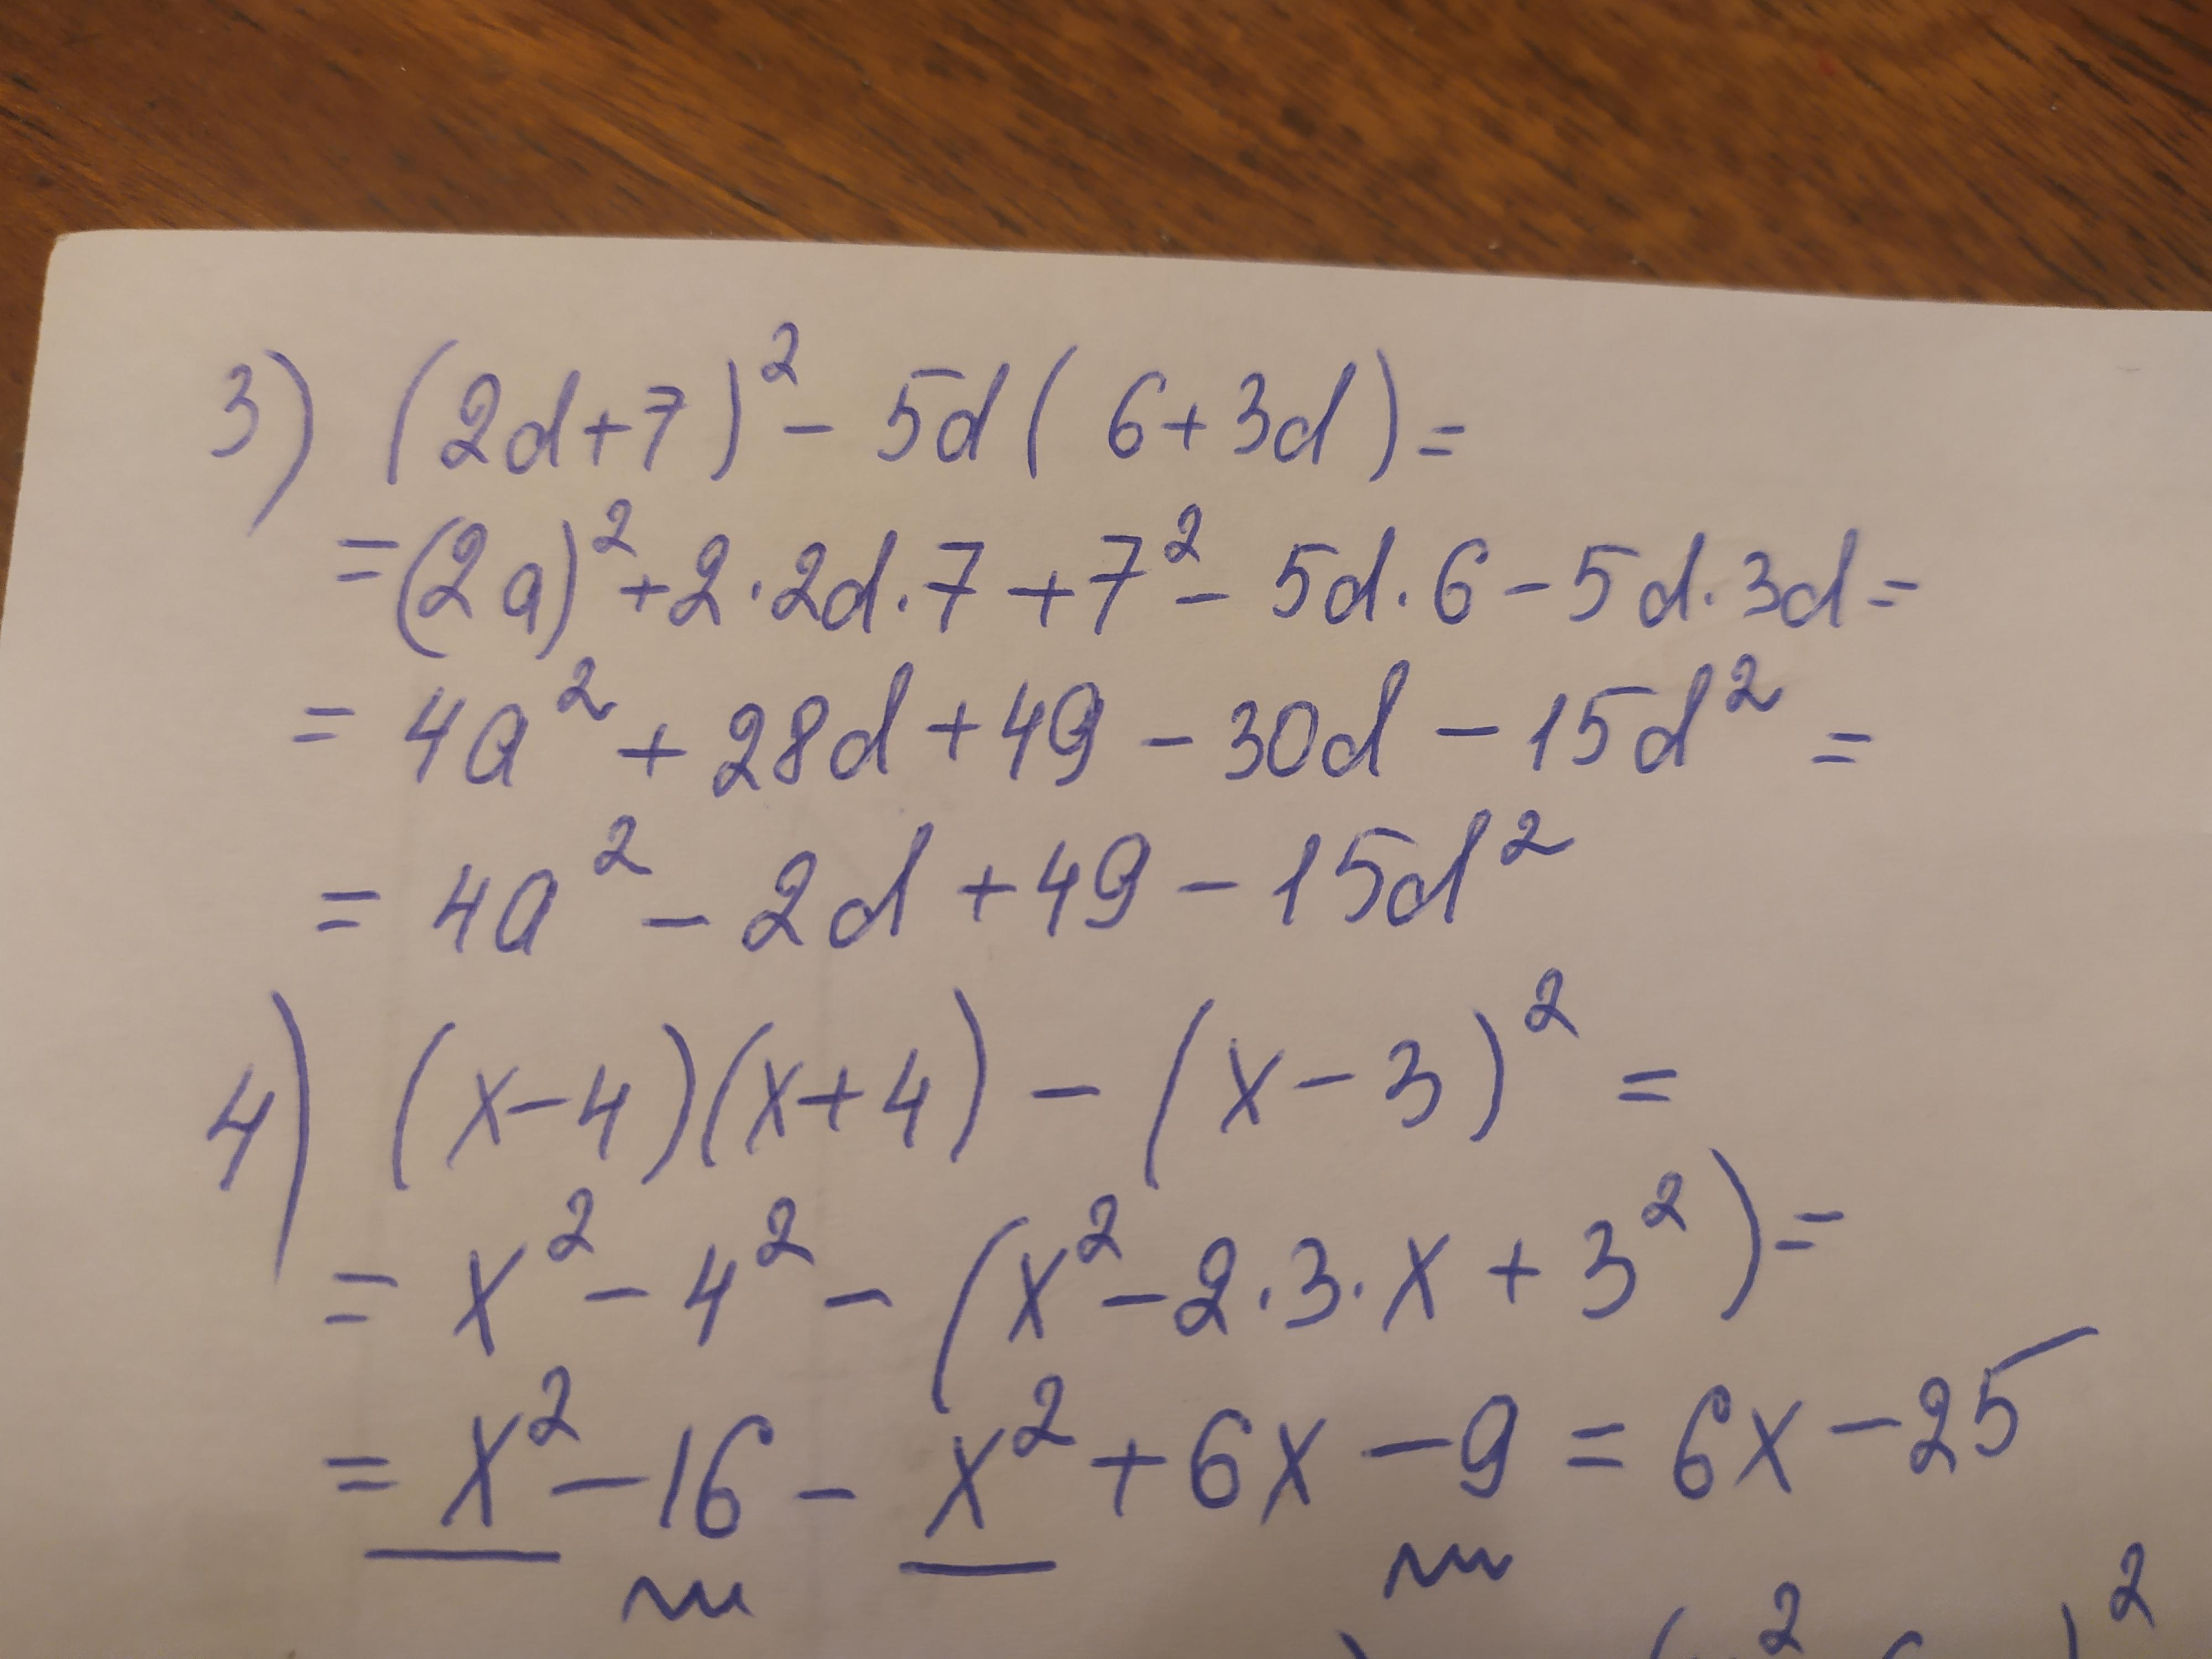 3) (2d+7)² - 5d(6+3d) =
= (2a)² + 2·2d·7 + 7² - 5d·6 - 5d·3d =
= 4a² + 28d + 49 - 30d - 15d² =
= 4a² - 2d + 49 - 15d²
4) (x-4)(x+4) - (x-3)² =
= x² - 4² - (x² - 2·3·x + 3²) =
= x² - 16 - x² + 6x - 9 = 6x - 25